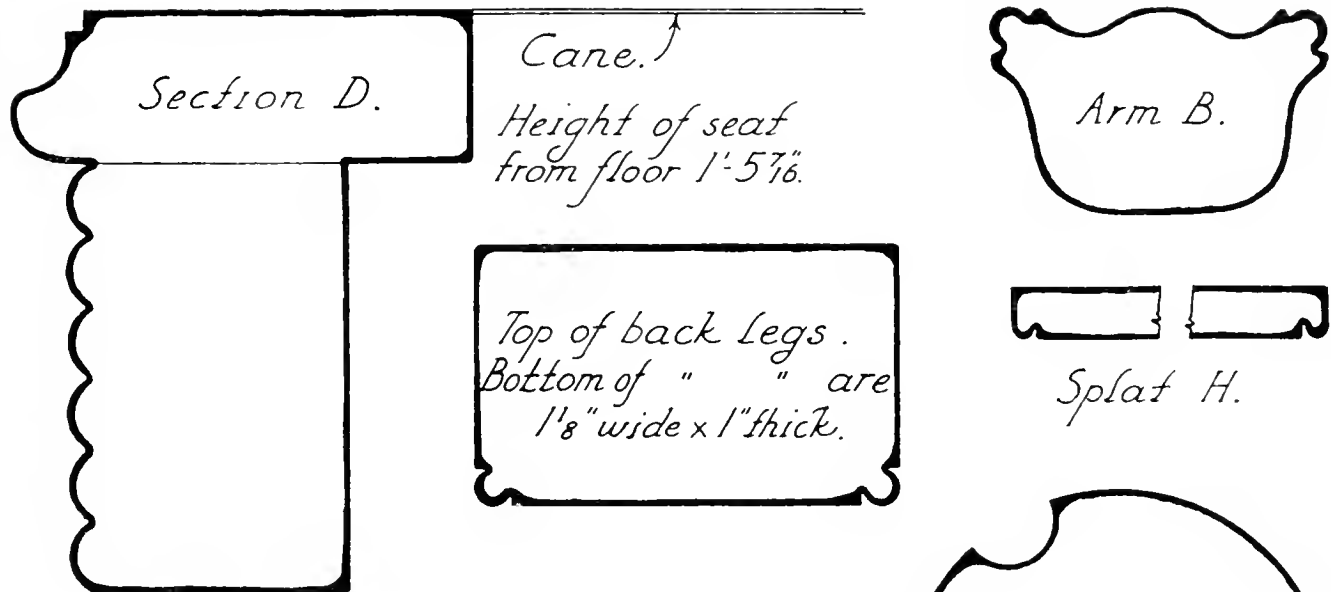 Section D.
Cane.
Height of seat
from floor 1'-5 7/16".
Arm B.
Top of back Legs.
Bottom of " " are
1 1/8" wide x 1" thick.
Splat H.